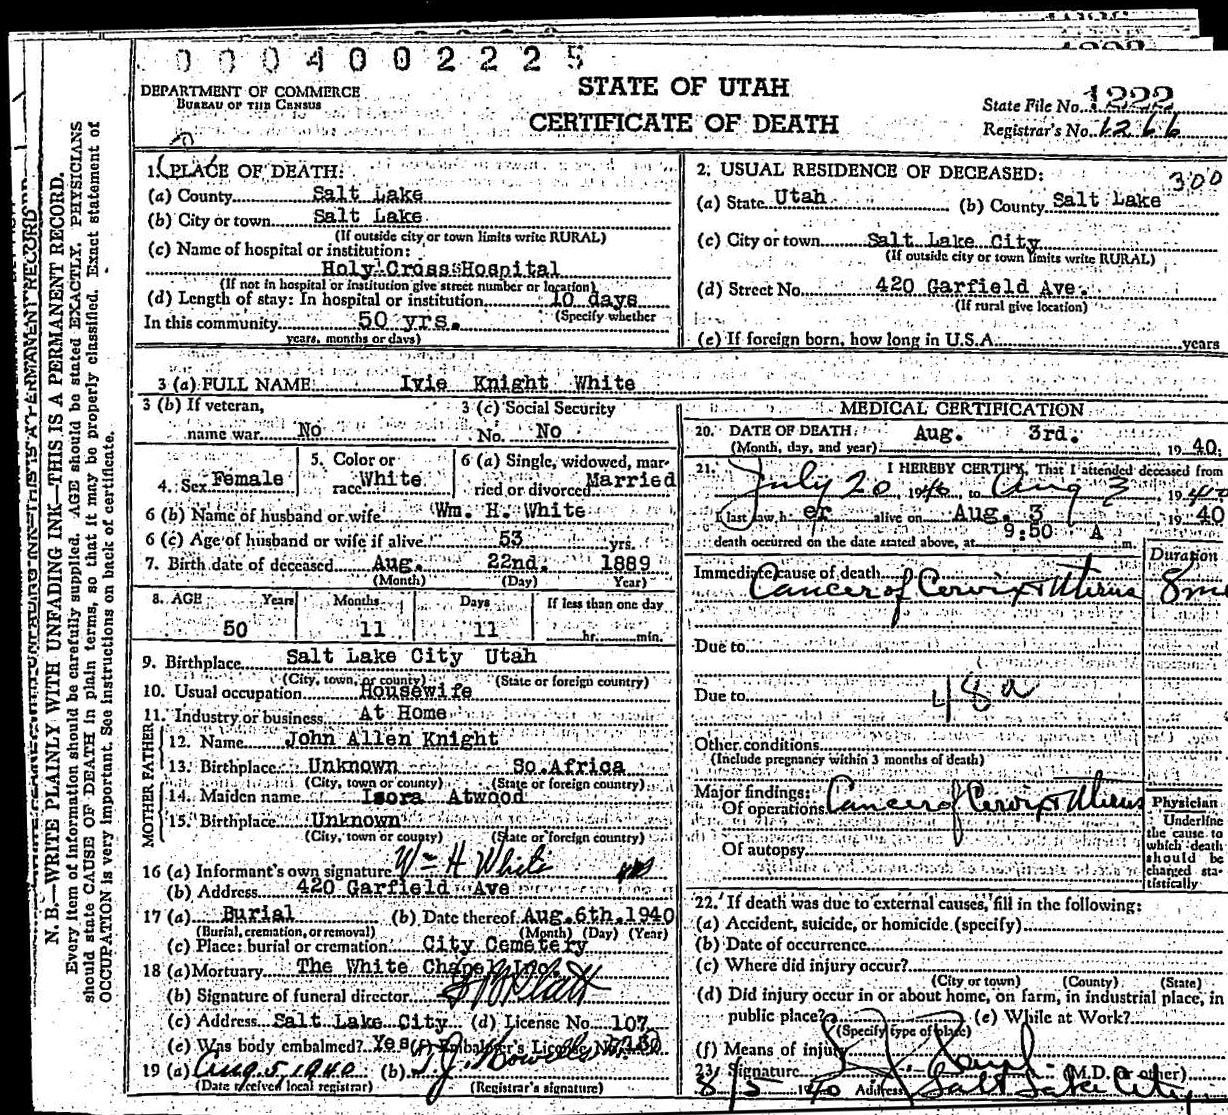 0 0 0 4 0 0 2 2 2 5
DEPARTMENT OF COMMERCE
BUREAU OF THE CENSUS
STATE OF UTAH
CERTIFICATE OF DEATH
State File No. 1222
Registrar's No. 1266
N. B.—WRITE PLAINLY WITH UNFADING INK—THIS IS A PERMANENT RECORD.
Every item of information should be carefully supplied. AGE should be stated EXACTLY. PHYSICIANS
should state CAUSE OF DEATH in plain terms, so that it may be properly classified. Exact statement of
OCCUPATION is very important. See instructions on back of certificate.
1. PLACE OF DEATH:
(a) County Salt Lake
(b) City or town Salt Lake
(If outside city or town limits write RURAL)
(c) Name of hospital or institution:
Holy Cross Hospital
(If not in hospital or institution give street number or location)
(d) Length of stay: In hospital or institution 10 days
In this community 50 yrs. (Specify whether
years, months or days)
2. USUAL RESIDENCE OF DECEASED: 300
(a) State Utah (b) County Salt Lake
(c) City or town Salt Lake City
(If outside city or town limits write RURAL)
(d) Street No. 420 Garfield Ave.
(If rural give location)
(e) If foreign born, how long in U.S.A. years
3 (a) FULL NAME Ivie Knight White
3 (b) If veteran, 3 (c) Social Security
name war No No. No
4. Sex Female 5. Color or race White 6 (a) Single, widowed, married or divorced Married
6 (b) Name of husband or wife Wm. H. White
6 (c) Age of husband or wife if alive 53 yrs.
7. Birth date of deceased Aug. 22nd. 1889
(Month) (Day) Year)
8. AGE Years Months Days If less than one day
50 11 11 hr. min.
9. Birthplace Salt Lake City Utah
(City, town, or county) (State or foreign country)
10. Usual occupation Housewife
11. Industry or business At Home
FATHER
12. Name John Allen Knight
13. Birthplace Unknown So.Africa
(City, town or county) (State or foreign country)
MOTHER
14. Maiden name Isora Atwood
15. Birthplace Unknown
(City, town or county) (State or foreign country)
16 (a) Informant's own signature Wm H White
(b) Address 420 Garfield Ave
17 (a) Burial (b) Date thereof Aug.6th.1940
(Burial, cremation, or removal) (Month) (Day) (Year)
(c) Place: burial or cremation City Cemetery
18 (a) Mortuary The White Chapel Inc.
(b) Signature of funeral director
(c) Address Salt Lake City (d) License No. 107
(e) Was body embalmed? Yes (f) Embalmer's License No.
19 (a) Aug. 5 1940 (b)
(Date received local registrar) (Registrar's signature)
MEDICAL CERTIFICATION
20. DATE OF DEATH: Aug. 3rd. 19 40.
(Month, day, and year)
21. I HEREBY CERTIFY, That I attended deceased from
July 20, 1940, to Aug 3, 1940
I last saw h er alive on Aug. 3, 19 40
death occurred on the date stated above, at 9:50 A m.
Duration
Immediate cause of death
Cancer of Cervix + Uterus 8 mo
Due to
Due to 48a
Other conditions
(Include pregnancy within 3 months of death)
Major findings:
Of operations Cancer of Cervix + Uterus
Of autopsy
Physician
Underline
the cause to
which death
should be
charged sta-
tistically
22. If death was due to external causes, fill in the following:
(a) Accident, suicide, or homicide (specify)
(b) Date of occurrence
(c) Where did injury occur?
(City or town) (County) (State)
(d) Did injury occur in or about home, on farm, in industrial place, in
public place? (e) While at Work?
(Specify type of place)
(f) Means of injury
23. Signature (M.D. or other)
8/5 1940 Address Salt Lake City